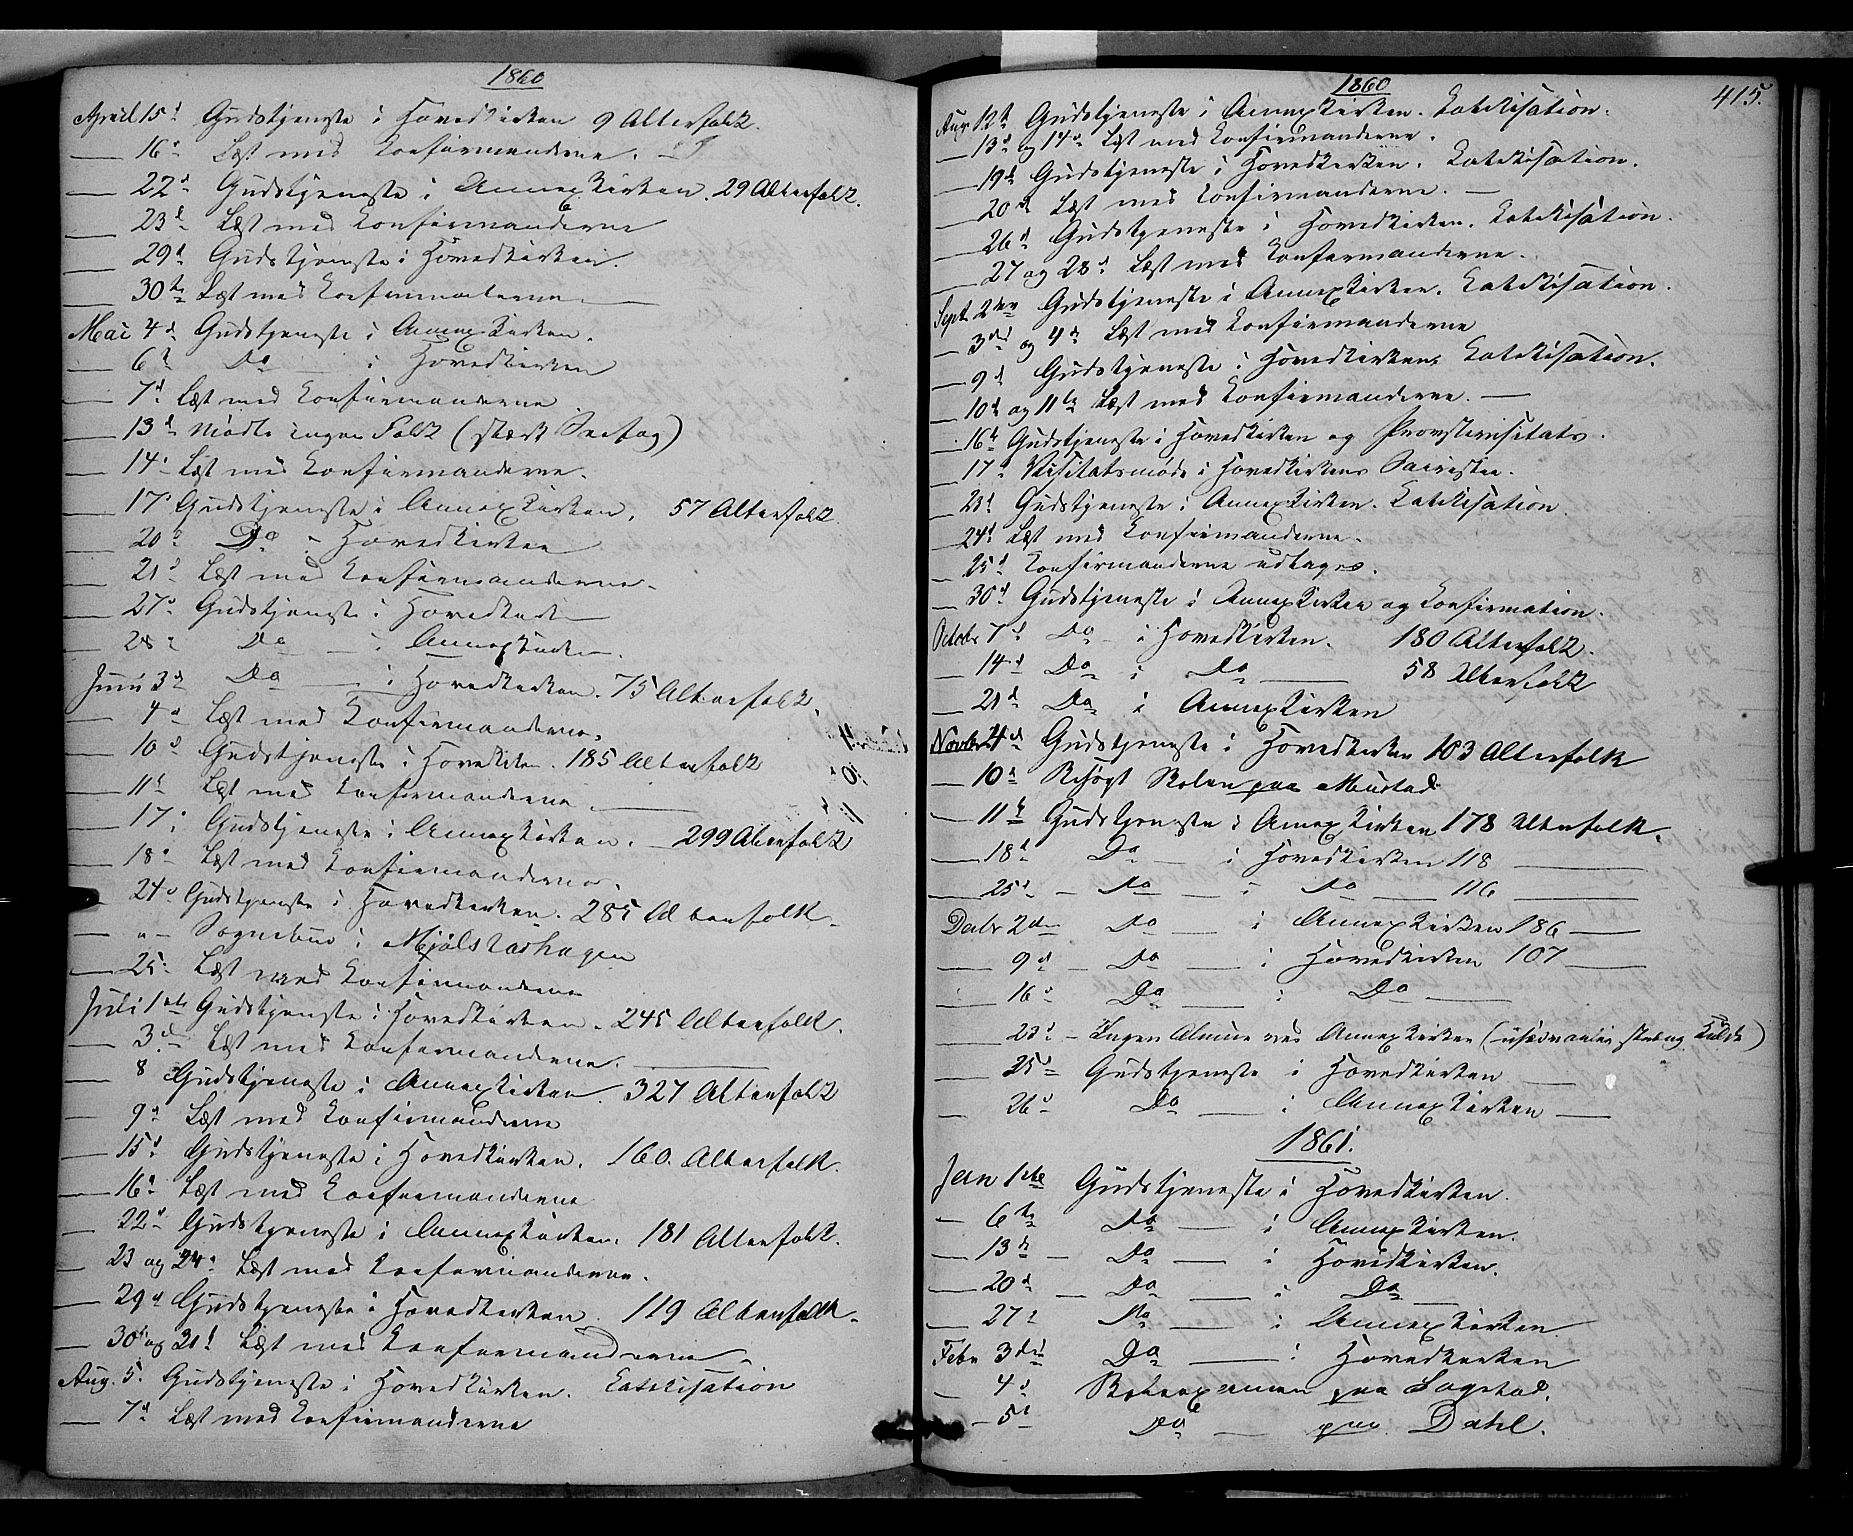 1860
April 15d Gudstjeneste i Hovedkirken 9 Alterfolk.
— 16d Læst med Konfirmanderne.
— 22d Gudstjeneste i Annexkirken. 29 Alterfolk.
— 23d Læst med Konfirmanderne
— 29d Gudstjeneste i Hovedkirken.
— 30te Læst med Konfirmanderne —
Mai 4d Gudstjeneste i Annexkirken.
— 6t Do i Hovedkirken
— 7d Læst med Konfirmanderne
— 13d mødte ingen Folk (stærk Snefog)
— 14d Læst med Konfirmanderne.
— 17d Gudstjeneste i Annexkirken. 57 Alterfolk
— 20d Do i Hovedkirken
— 21d Læst med Konfirmanderne.
— 27d Gudstjeneste i Hovedkirken
— 28d Do — i Annexkirken.
Juni 3d Do — i Hovedkirken. 75 Alterfolk.
— 4d Læst med Konfirmanderne.
— 10d Gudstjeneste i Hovedkirken. 185 Alterfolk
— 11t Læst med Konfirmanderne. —
— 17d Gudstjeneste i Annexkirken. — 299 Altenfolk
— 18d Læst med Konfirmanderne.
— 24d Gudstjeneste i Hovedkirken. 285 Altenfolk.
— " — Sognebud i Mjølstadhagen
— 25d Læst med Konfirmanderne
Juli 1ste Gudstjeneste i Hovedkirken. 245 Altenfolk.
— 3d Læst med Konfirmanderne. —
— 8 Gudstjeneste i Annexkirken. 327 Altenfolk
— 9d Læst med Konfirmanderne
— 15d Gudstjeneste i Hovedkirken. 160. Altenfolk.
— 16d Læst med Konfirmanderne
— 22d Gudstjeneste i Annexkirken. 181 Altenfolk.
— 23 og 24d Læst med Konfirmanderne.
— 29d Gudstjeneste i Hovedkirken. 119 Altenfolk.
— 30d og 31d Læst med Konfirmanderne.
Aug. 5. Gudstjeneste i Hovedkirken. Katekisation
— 7d Læst med Konfirmanderne
1860
415.
Aug 12t Gudstjeneste i Annexkirken. Katekisation.
— 13d og 14d Læst med Konfirmanderne.
— 19d Gudstjeneste i Hovedkirken. Katekisation.
— 20d Læst med Konfirmanderne. —
— 26d Gudstjeneste i Hovedkirken. Katekisation.
— 27 og 28d Læst med Konfirmanderne.
Sept. 2den Gudstjeneste i Annexkirken. Katekisation.
— 3die og 4d Læst med Konfirmanderne
— 9d Gudstjeneste i Hovedkirken. Katekisation.
— 10d og 11te Læst med Konfirmanderne. —
— 16d Gudstjeneste i Hovedkirken og Provstevisitats.
— 17d Visitatsmøde i Hovedkirkens Sacristie.
— 23d Gudstjeneste i Annexkirken. Katekisation.
— 24d Læst med Konfirmanderne.
— 25d Konfirmanderne udtages.
— 30d Gudstjeneste i Annexkirken og Konfirmation.
Octobr 7d Do — i Hovedkirken. 180 Altenfolk.
— 14d Do i Do — 58 Altenfolk
— 21d Do i Annexkirken
Novbr 4d Gudstjeneste i Hovedkirken 103 Altenfolk
— 10d Besøgt Skolen paa Mustad
— 11t Gudstjeneste i Annexkirken 178 Altenfolk.
— 18d Do — i Hovedkirken 118 —
— 25d — Do — i Do — 116 —
Decbr 2den Do — i Annexkirken 186 —
— 9d — Do — i Hovedkirken 107 —
— 16d Do — i Do —
— 23d — Ingen Almue ved Annexkirken (usædvanlig streng Kulde)
— 25d Gudstjeneste i Hovedkirken —
— 26d Do — i Annexkirken —
1861.
Jan 1ste Gudstjeneste i Hovedkirken.
— 6te Do — i Annexkirken.
— 13de — Do — i Hovedkirken.
— 20d — Do — i Do —
— 27d Do — i Annexkirken
Febr 3die Do — i Hovedkirken
— 4d Skoleexamen paa Sogstad.
— 5t Do — paa Dahl.